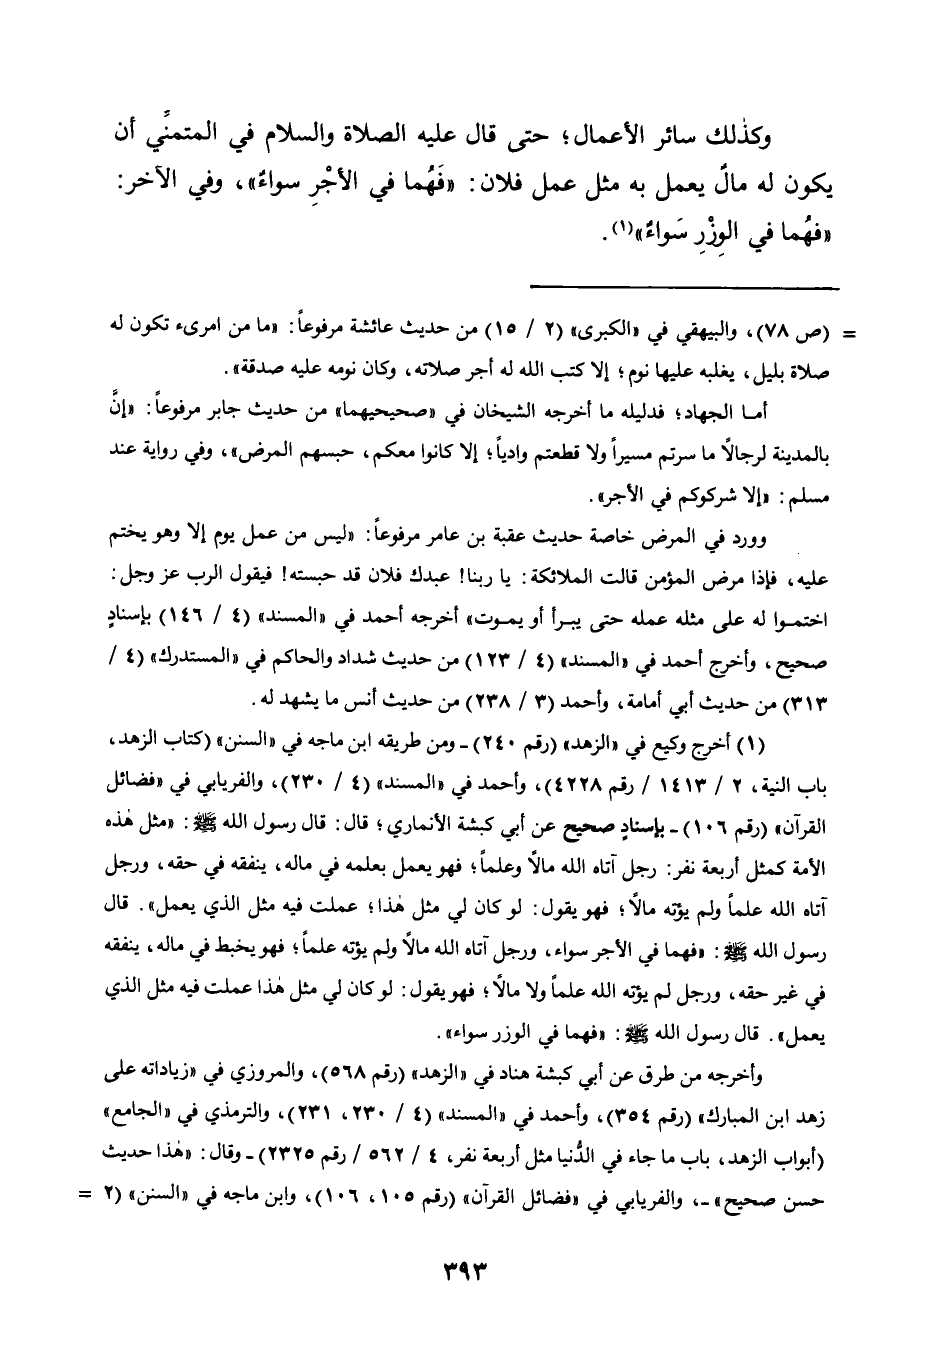 وكذٰلك سائر الأعمال؛ حتى قال عليه الصلاة والسلام في المتمنِّي أن
يكون له مالٌ يعمل به مثل عمل فلان: «فَهُما في الأجْرِ سواءٌ»، وفي الآخر:
«فهُما في الوِزْرِ سَواءٌ»(١).
= (ص ٧٨)، والبيهقي في «الكبرى» (٢ / ١٥) من حديث عائشة مرفوعاً: «ما من امرىء تكون له
صلاة بليل، يغلبه عليها نوم؛ إلا كتب الله له أجر صلاته، وكان نومه عليه صدقة».
أما الجهاد؛ فدليله ما أخرجه الشيخان في «صحيحيهما» من حديث جابر مرفوعاً: «إنَّ
بالمدينة لرجالاً ما سرتم مسيراً ولا قطعتم وادياً؛ إلا كانوا معكم، حبسهم المرض»، وفي رواية عند
مسلم: «إلا شركوكم في الأجر».
وورد في المرض خاصة حديث عقبة بن عامر مرفوعاً: «ليس من عمل يوم إلا وهو يختم
عليه، فإذا مرض المؤمن قالت الملائكة: يا ربنا! عبدك فلان قد حبسته! فيقول الرب عز وجل:
اختموا له على مثله عمله حتى يبرأ أو يموت» أخرجه أحمد في «المسند» (٤ / ١٤٦) بإسنادٍ
صحيح، وأخرج أحمد في «المسند» (٤ / ١٢٣) من حديث شداد والحاكم في «المستدرك» (٤ /
٣١٣) من حديث أبي أمامة، وأحمد (٣ / ٢٣٨) من حديث أنس ما يشهد له.
(١) أخرج وكيع في «الزهد» (رقم ٢٤٠) ـ ومن طريقه ابن ماجه في «السنن» (كتاب الزهد،
باب النية، ٢ / ١٤١٣ / رقم ٤٢٢٨)، وأحمد في «المسند» (٤ / ٢٣٠)، والفريابي في «فضائل
القرآن» (رقم ١٠٦) ـ بإسنادٍ صحيح عن أبي كبشة الأنماري؛ قال: قال رسول الله ﷺ: «مثل هٰذه
الأمة كمثل أربعة نفر: رجل آتاه الله مالاً وعلماً؛ فهو يعمل بعلمه في ماله، ينفقه في حقه، ورجل
آتاه الله علماً ولم يؤته مالاً؛ فهو يقول: لو كان لي مثل هٰذا؛ عملت فيه مثل الذي يعمل». قال
رسول الله ﷺ: «فهما في الأجر سواء، ورجل آتاه الله مالاً ولم يؤته علماً؛ فهو يخبط في ماله، ينفقه
في غير حقه، ورجل لم يؤته الله علماً ولا مالاً؛ فهو يقول: لو كان لي مثل هٰذا عملت فيه مثل الذي
يعمل». قال رسول الله ﷺ: «فهما في الوزر سواء».
وأخرجه من طرق عن أبي كبشة هناد في «الزهد» (رقم ٥٦٨)، والمروزي في «زياداته على
زهد ابن المبارك» (رقم ٣٥٤)، وأحمد في «المسند» (٤ / ٢٣٠، ٢٣١)، والترمذي في «الجامع»
(أبواب الزهد، باب ما جاء في الدُّنيا مثل أربعة نفر، ٤ / ٥٦٢ / رقم ٢٣٢٥) ـ وقال: «هٰذا حديث
حسن صحيح» ـ، والفريابي في «فضائل القرآن» (رقم ١٠٥، ١٠٦)، وابن ماجه في «السنن» (٢ =
٣٩٣